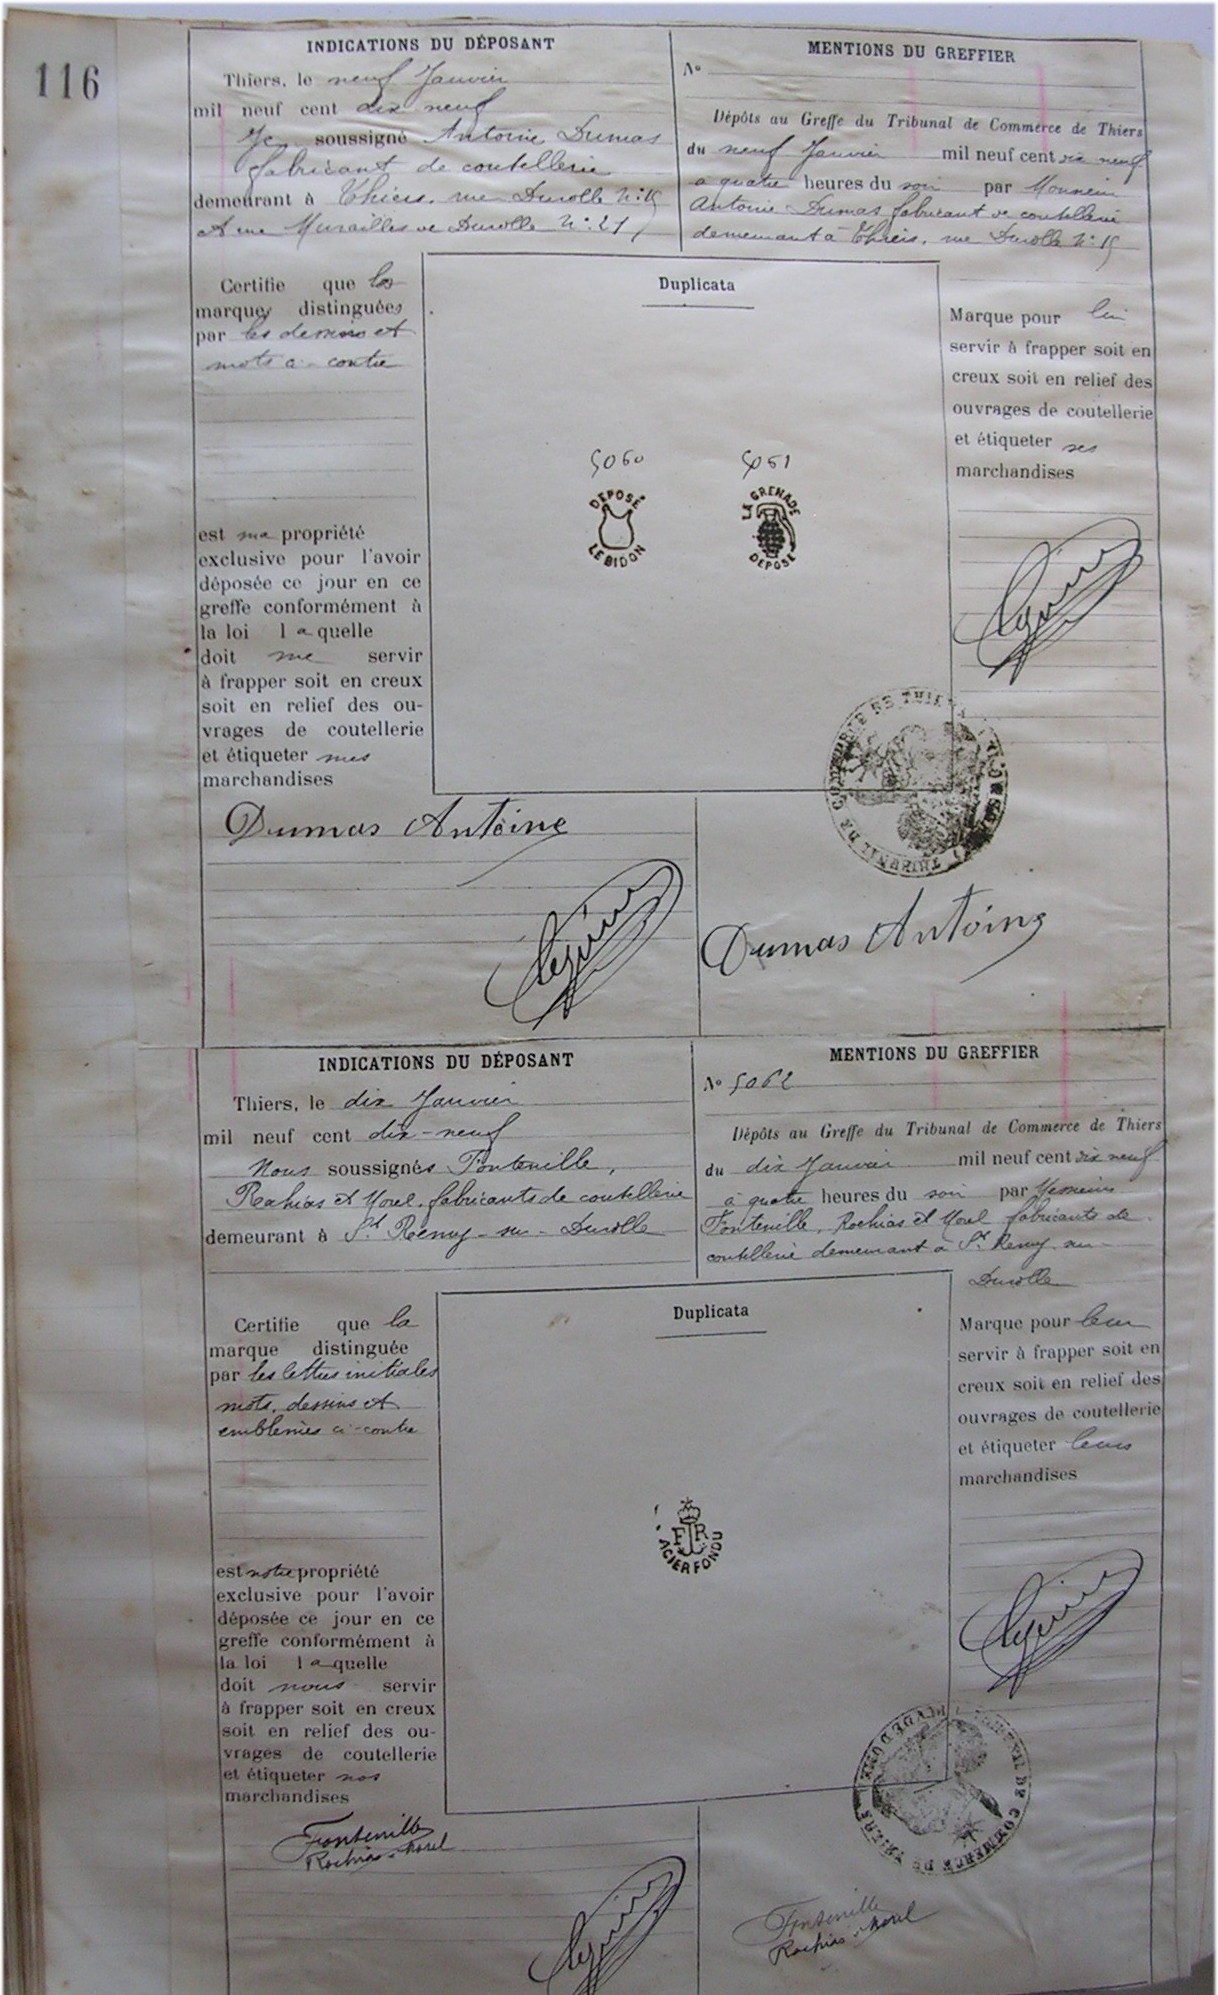 116
INDICATIONS DU DÉPOSANT
Thiers, le neuf Janvier
mil neuf cent dix neuf
Je soussigné Antoine Dumas
fabricant de coutellerie
demeurant à Thiers, rue Durolle N: 15
Murailles de Durolle N: 21
MENTIONS DU GREFFIER
N°
Dépôts au Greffe du Tribunal de Commerce de Thiers
du neuf Janvier mil neuf cent dix neuf
a quatre heures du soir par Monsieur
Antoine Dumas fabricant de coutellerie
demeurant à Thiers, rue Durolle N: 15
Certifie que les
marques distinguées
par les dessins et
mots ci-contre
est ma propriété
exclusive pour l'avoir
déposée ce jour en ce
greffe conformément à
la loi laquelle
doit me servir
à frapper soit en creux
soit en relief des ou-
vrages de coutellerie
et étiqueter mes
marchandises
Duplicata
5060 5061
DÉPOSÉ
LE BIDON
LA GRENADE
DÉPOSÉ
Marque pour lui
servir à frapper soit en
creux soit en relief des
ouvrages de coutellerie
et étiqueter ses
marchandises
TRIBUNAL DE COMMERCE DE THIERS
Dumas Antoine
Dumas Antoine
INDICATIONS DU DÉPOSANT
Thiers, le dix Janvier
mil neuf cent dix-neuf
Nous soussignés Fontenille,
Rochias et Morel, fabricants de coutellerie
demeurant à St. Rémy-sur-Durolle
MENTIONS DU GREFFIER
N° 5062
Dépôts au Greffe du Tribunal de Commerce de Thiers
du dix Janvier mil neuf cent dix neuf
à quatre heures du soir par Messieurs
Fontenille, Rochias et Morel fabricants de
coutellerie demeurant à St. Remy sur
Durolle
Certifie que la
marque distinguée
par les lettres initiales
mots, dessins et
emblèmes ci-contre
est notre propriété
exclusive pour l'avoir
déposée ce jour en ce
greffe conformément à
la loi laquelle
doit nous servir
à frapper soit en creux
soit en relief des ou-
vrages de coutellerie
et étiqueter nos
marchandises
Duplicata
F R
ACIER FONDU
Marque pour leur
servir à frapper soit en
creux soit en relief des
ouvrages de coutellerie
et étiqueter leurs
marchandises
TRIBUNAL DE COMMERCE DE THIERS
Fontenille
Rochias & Morel
Fontenille
Rochias & Morel